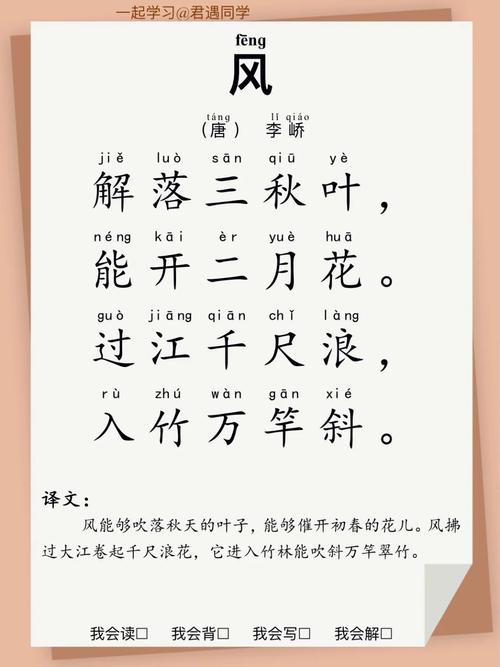 一起学习@君遇同学
fēng
风
táng lǐ qiáo
（唐） 李峤
jiě luò sān qiū yè
解落三秋叶，
néng kāi èr yuè huā
能开二月花。
guò jiāng qiān chǐ làng
过江千尺浪，
rù zhú wàn gān xié
入竹万竿斜。
译文：
风能够吹落秋天的叶子，能够催开初春的花儿。风拂
过大江卷起千尺浪花，它进入竹林能吹斜万竿翠竹。
我会读□ 我会背□ 我会写□ 我会解□